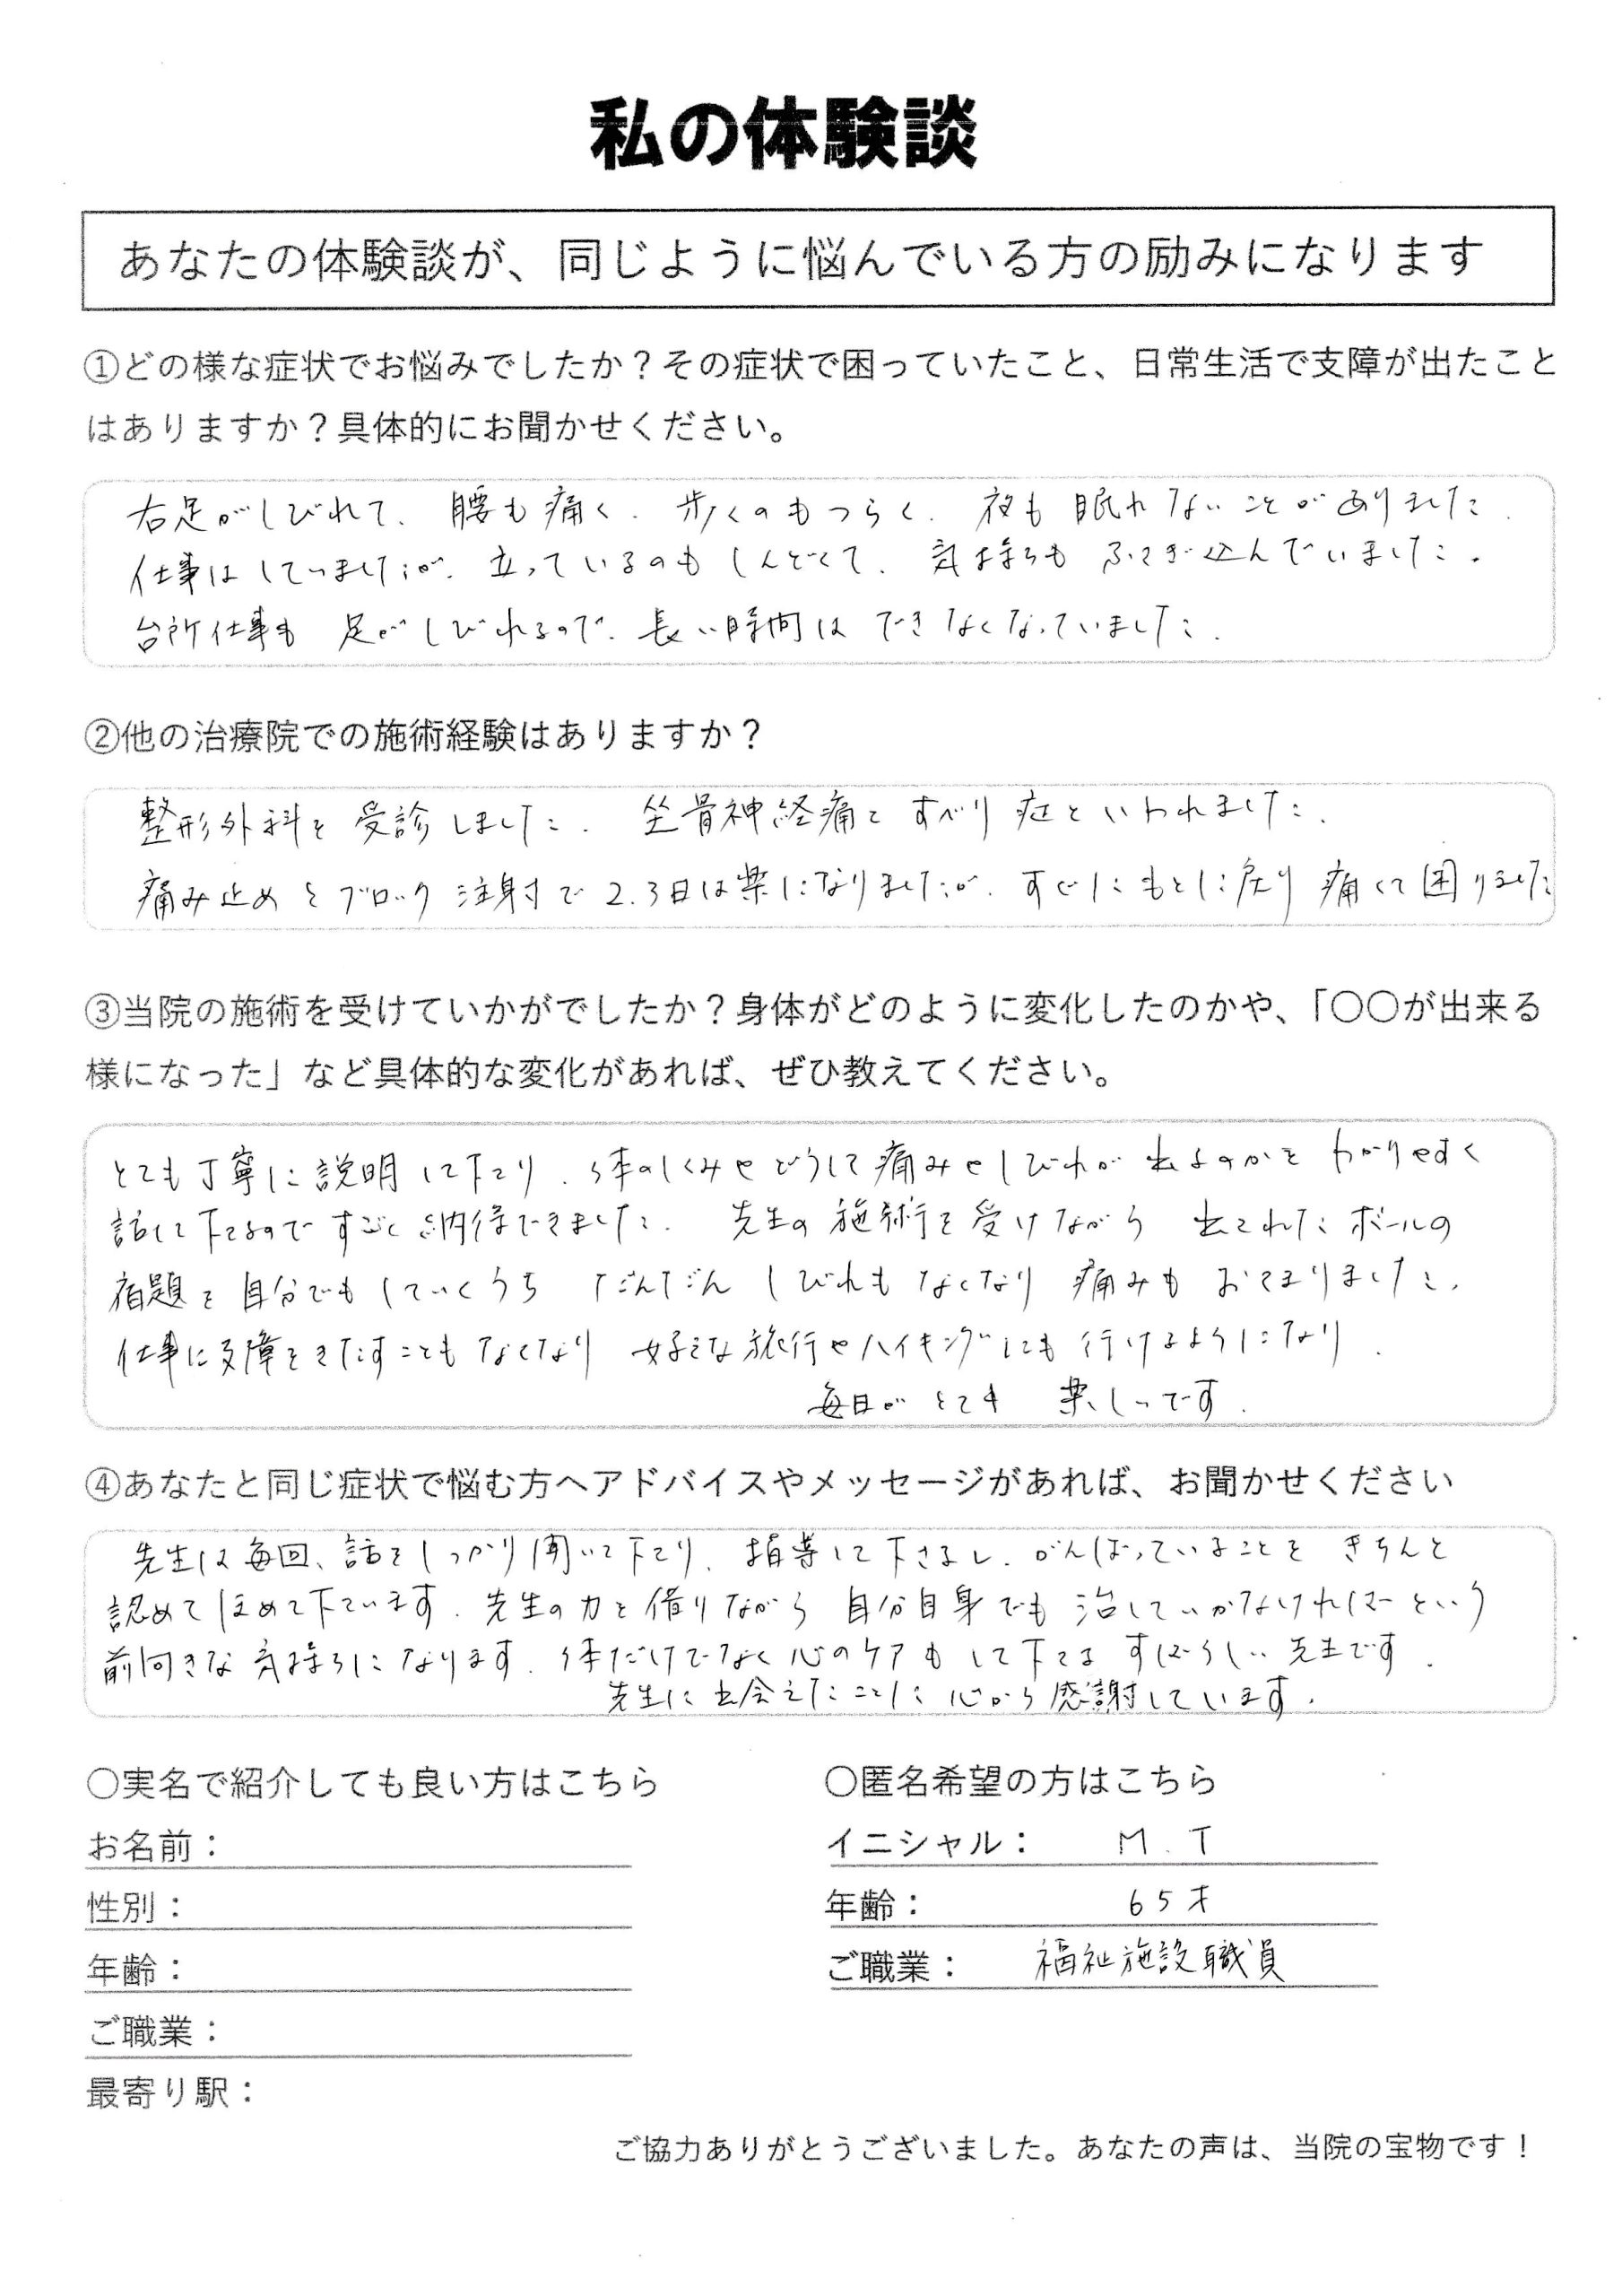 私の体験談
あなたの体験談が、同じように悩んでいる方の励みになります
①どの様な症状でお悩みでしたか？その症状で困っていたこと、日常生活で支障が出たこと
はありますか？具体的にお聞かせください。
右足がしびれて、腰も痛く、歩くのもつらく、夜も眠れないことがありました。
仕事はしていましたが、立っているのもしんどくて、気持ちもふさぎ込んでいました。
台所仕事も足がしびれるので、長い時間はできなくなっていました。
②他の治療院での施術経験はありますか？
整形外科を受診しました。坐骨神経痛とすべり症といわれました。
痛み止めとブロック注射で2、3日は楽になりましたが、すぐにもとに戻り痛くて困りました
③当院の施術を受けていかがでしたか？身体がどのように変化したのかや、「〇〇が出来る
様になった」など具体的な変化があれば、ぜひ教えてください。
とても丁寧に説明して下さり、体のしくみやどうして痛みやしびれが出るのかをわかりやすく
話して下さるのですごく納得できました。先生の施術を受けながら出されたボールの
宿題を自分でもしていくうちだんだんしびれもなくなり痛みもおさまりました。
仕事に支障をきたすこともなくなり好きな旅行やハイキングにも行けるようになり、
毎日がとても楽しいです。
④あなたと同じ症状で悩む方へアドバイスやメッセージがあれば、お聞かせください
先生は毎回、話をしっかり聞いて下さり、指導して下さるし、がんばっていることをきちんと
認めてほめて下さいます。先生の力を借りながら自分自身でも治していかなければーという
前向きな気持ちになります。体だけでなく心のケアもして下さるすばらしい先生です。
先生に出会えたことに心から感謝しています。
〇実名で紹介しても良い方はこちら
〇匿名希望の方はこちら
お名前：
イニシャル： M.T
性別：
年齢： 65才
年齢：
ご職業： 福祉施設職員
ご職業：
最寄り駅：
ご協力ありがとうございました。あなたの声は、当院の宝物です！